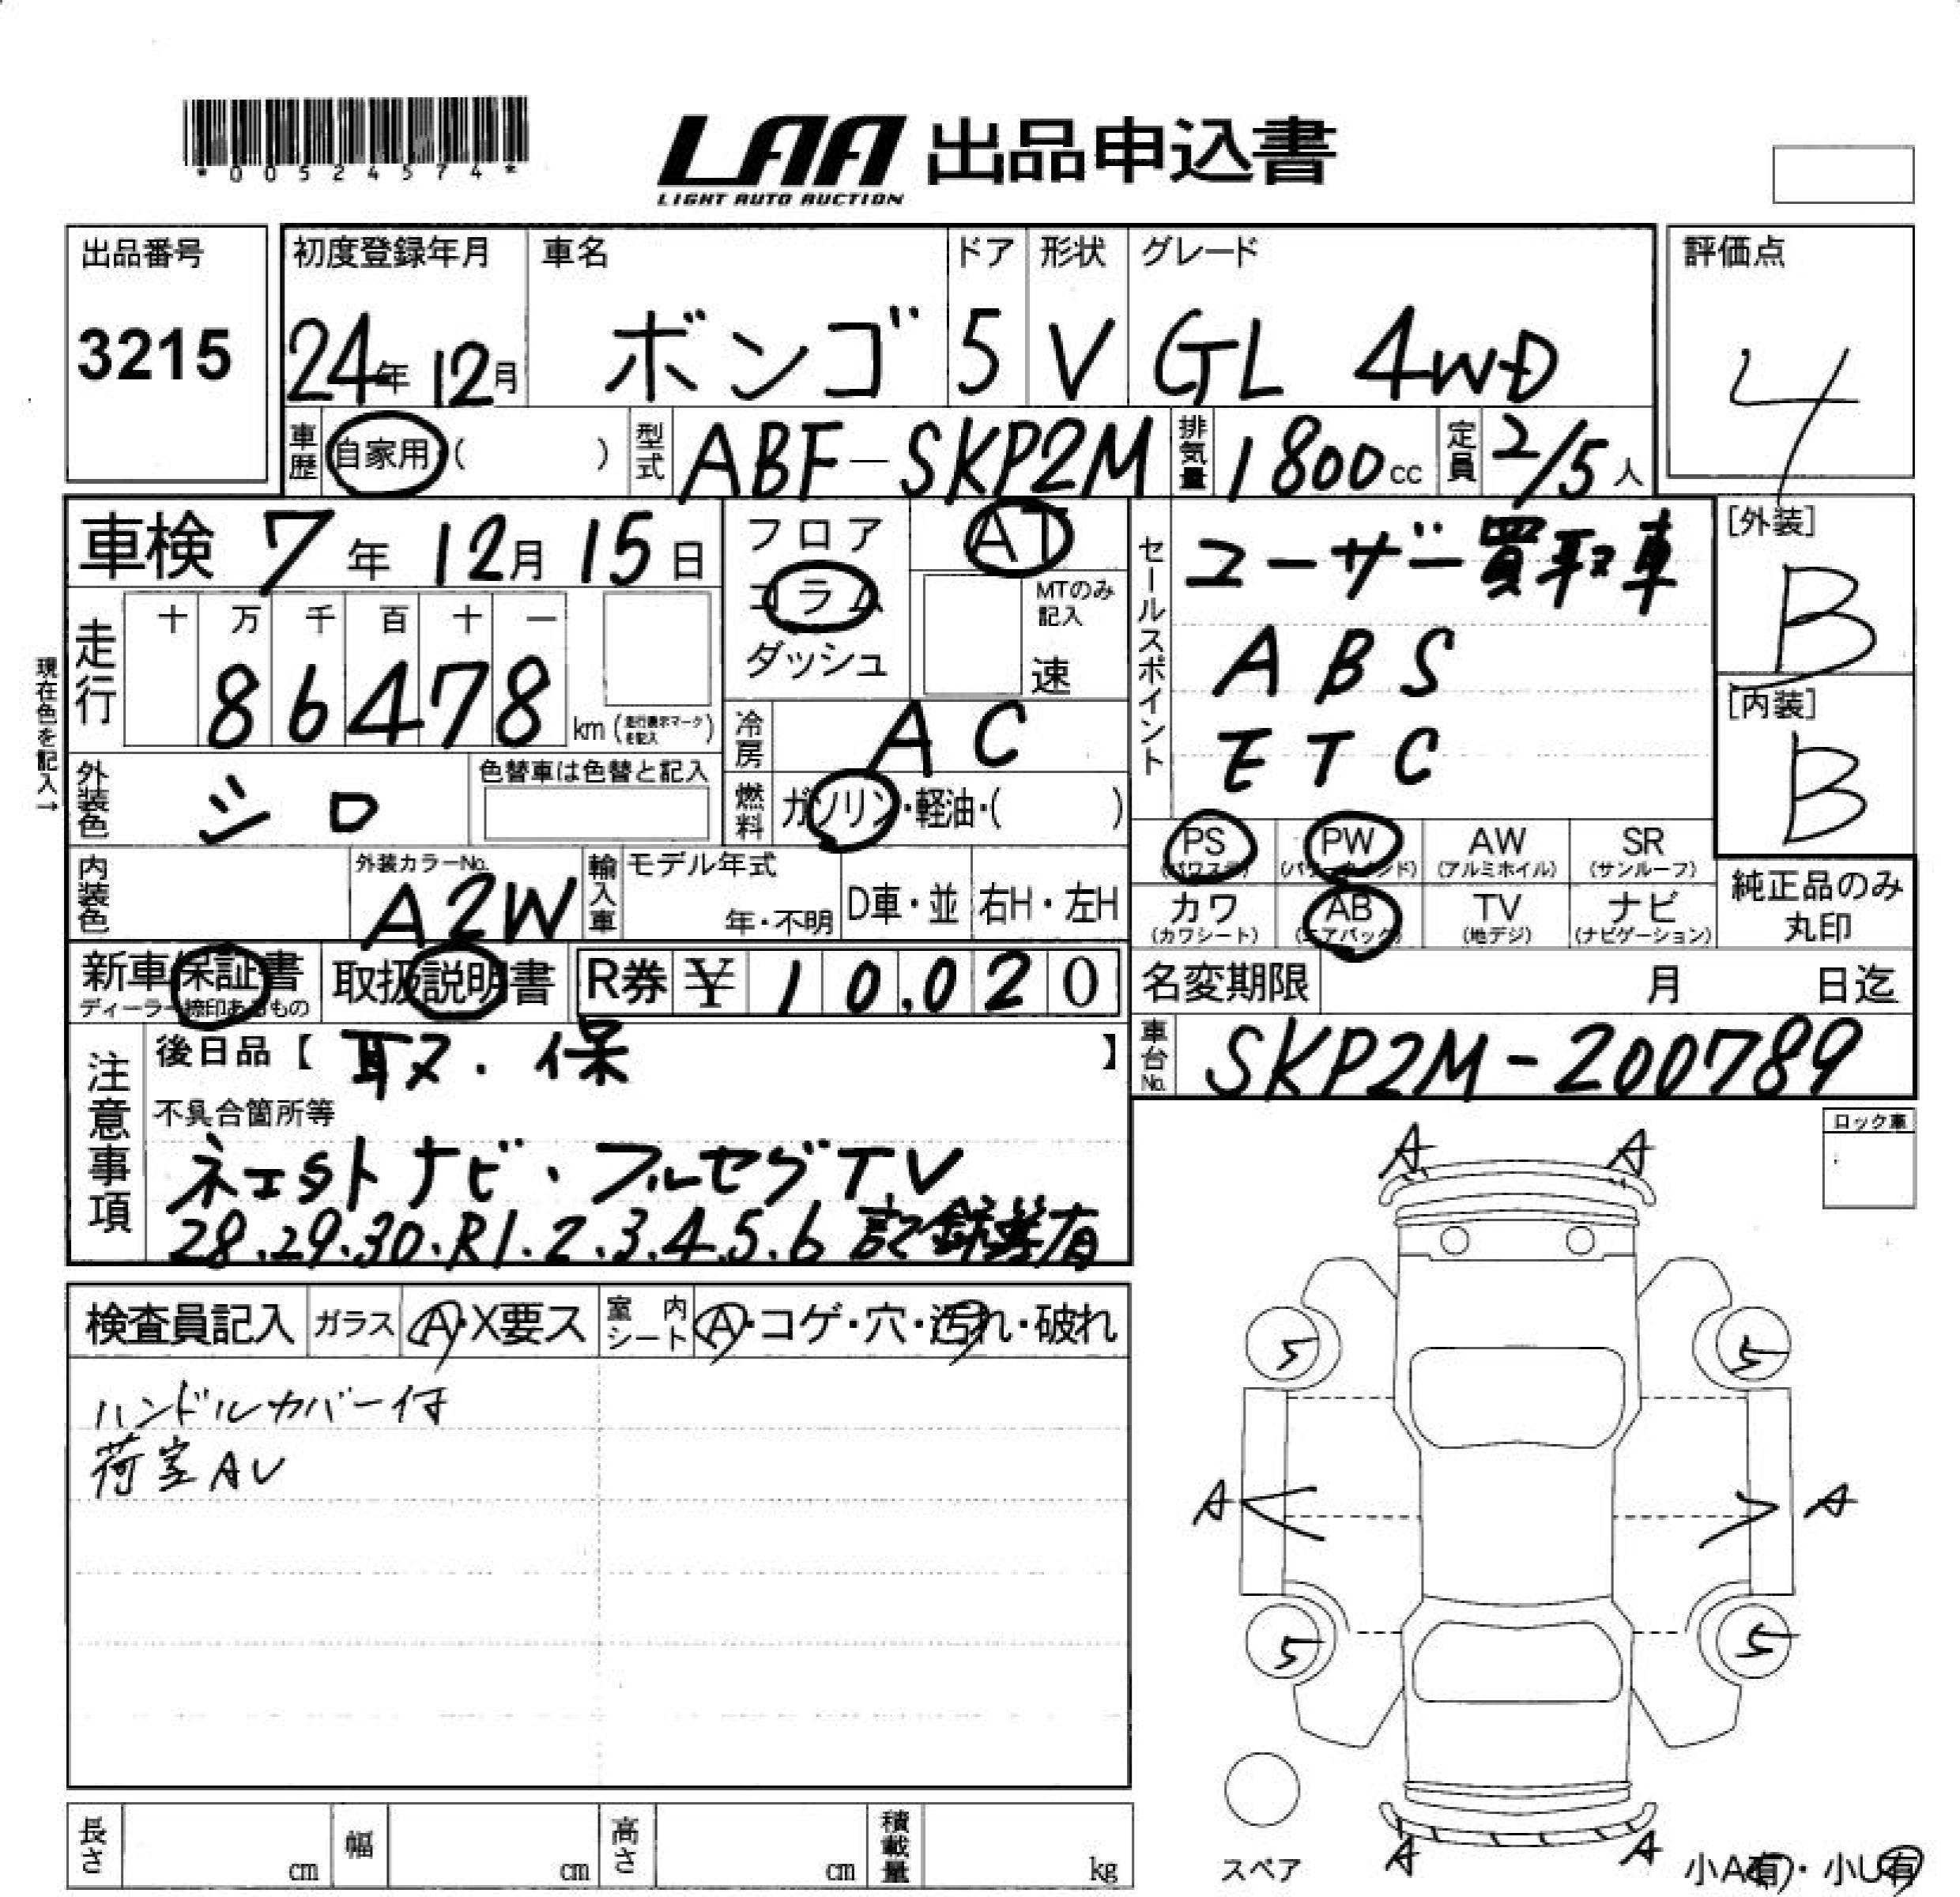 *00524574*
LAA 出品申込書
LIGHT AUTO AUCTION
出品番号
3215
初度登録年月 車名 ドア 形状 グレード
24年 12月 ボンゴ 5 V GL 4WD
評価点
4
車歴 自家用 ( ) 型式 ABF-SKP2M 排気量 1800cc 定員 2/5人
車検 7年 12月 15日
フロア
コラム
ダッシュ
AT
MTのみ記入
速
セールスポイント
ユーザー買取車
ABS
ETC
[外装]
B
[内装]
B
現在色を記入→
走行 十 万 千 百 十 一
86478 km (走行表示マークを記入)
冷房 AC
外装色 シロ
色替車は色替と記入
燃料 ガソリン・軽油・( )
PS (パワステ) PW (パワーウインド) AW (アルミホイル) SR (サンルーフ)
カワ (カワシート) AB (エアバック) TV (地デジ) ナビ (ナビゲーション)
純正品のみ
丸印
内装色 外装カラーNo. A2W
輸入車 モデル年式 年・不明 D車・並 右H・左H
新車保証書
ディーラー締印あるもの
取扱説明書 R券 ¥ 10,020
名変期限 月 日迄
車台No. SKP2M-200789
注意事項
後日品【取・保】
不具合箇所等
ネエクストナビ・フルセグTV
28.29.30.R1.2.3.4.5.6 記録簿有
ロック車
検査員記入 ガラス A・X要ス 室内シート A・コゲ・穴・汚れ・破れ
ハンドルカバー付
荷室AU
A A
5 5
A A
5 5
A A
スペア
小A有・小U有
長さ cm 幅 cm 高さ cm 積載量 kg